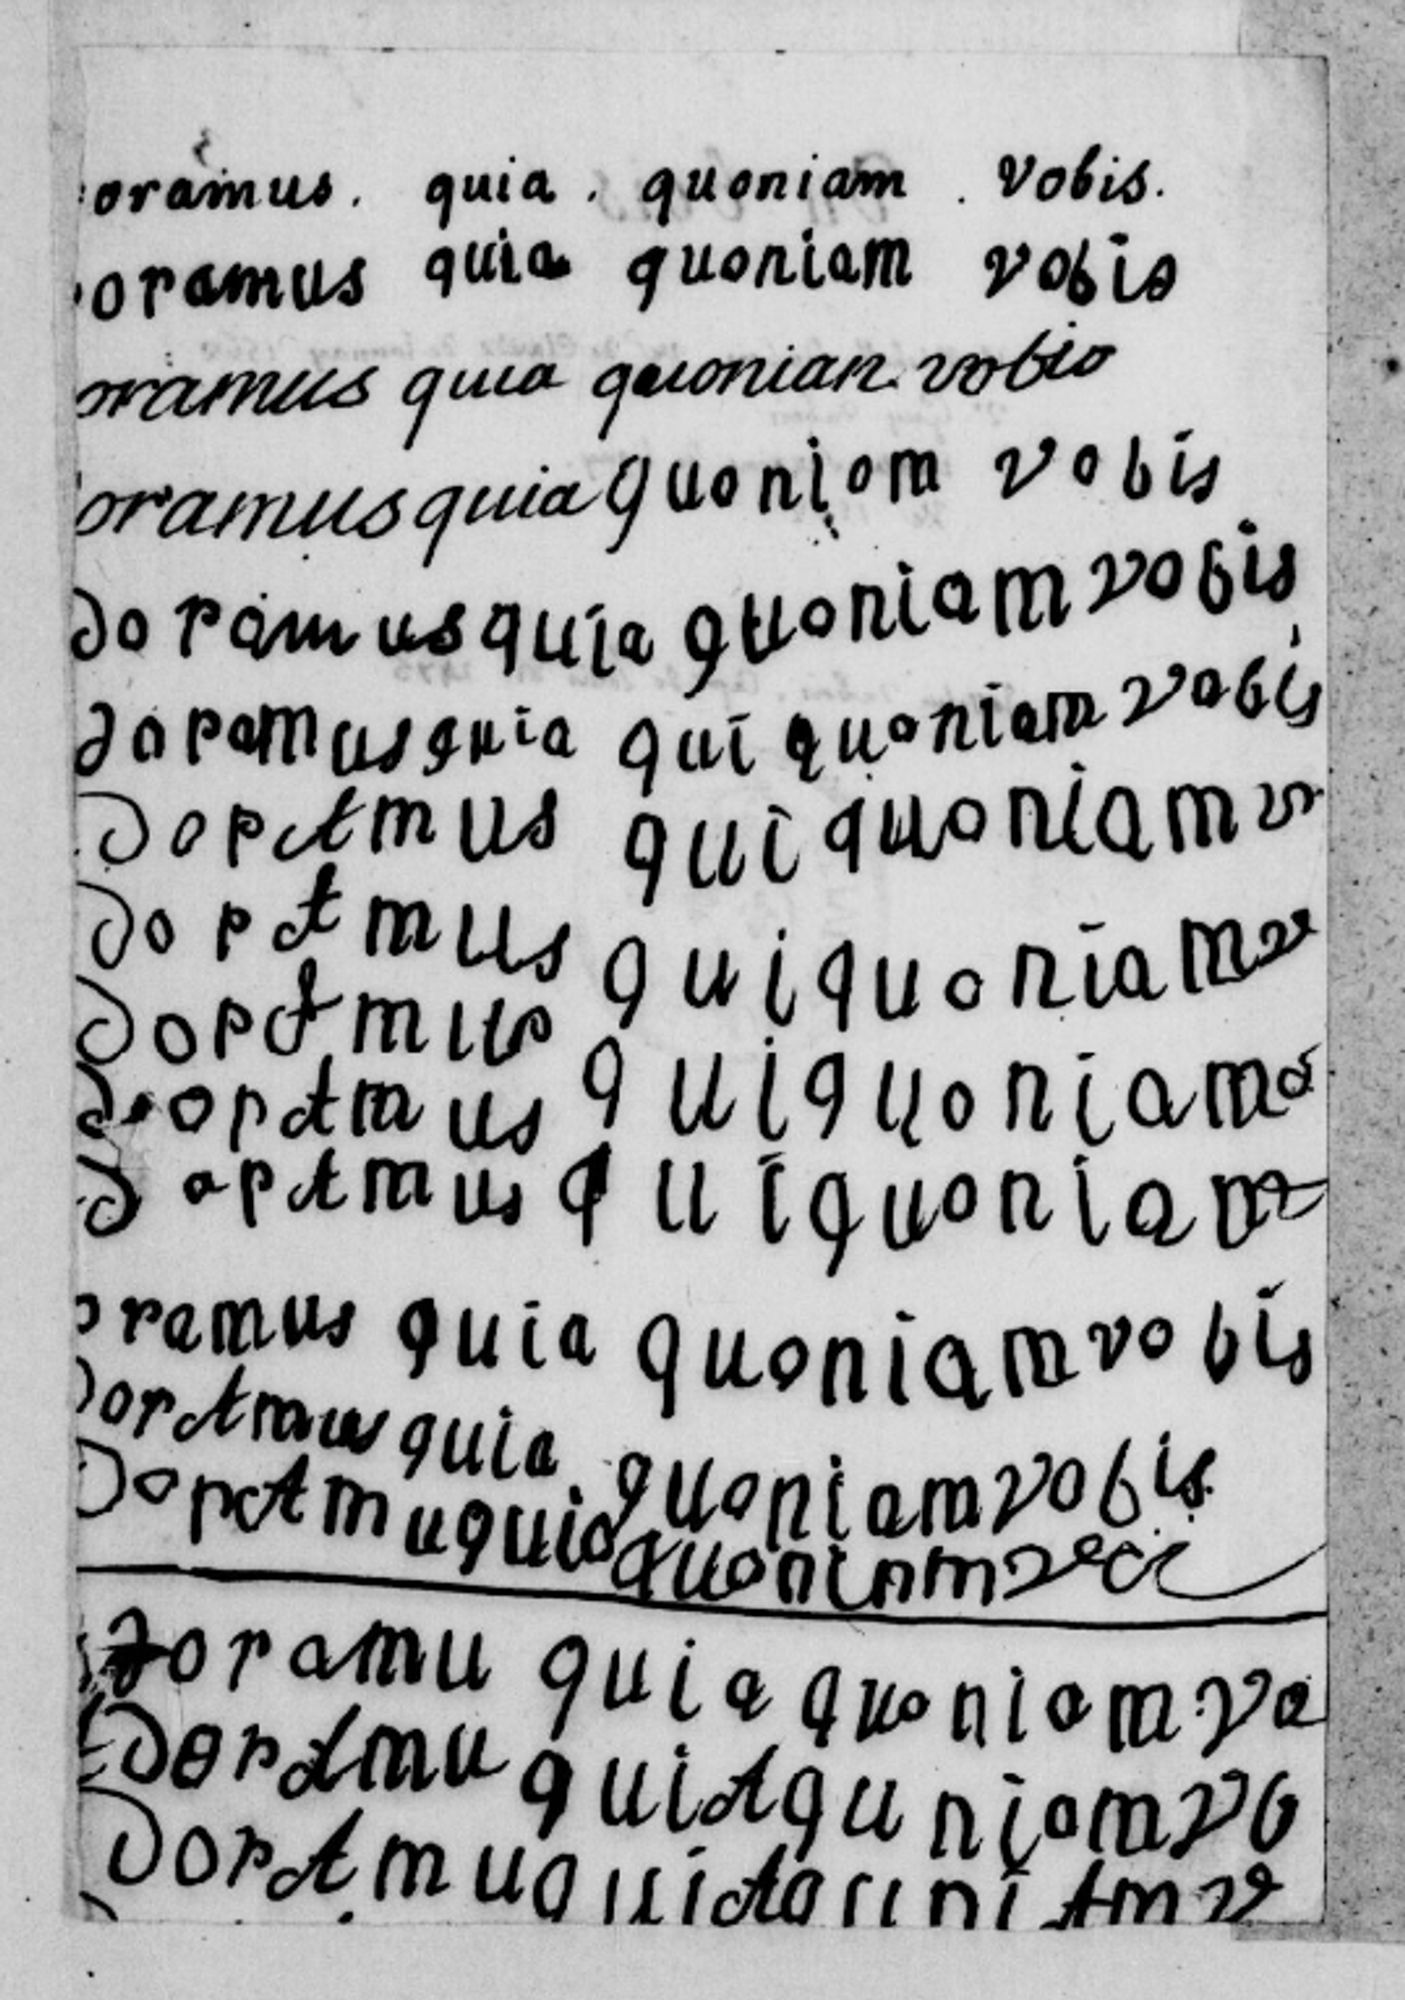 oramus. quia. quoniam. vobis.
oramus quia quoniam vobis
oramus quia quonian vobis
oramus quia quoniom vobis
doramus quia quoniam vobis
doramus quia qui quoniam vobis
doramus qui quoniam vo
doramus qui quoniam v
doramus qui quoniam
doramus qui quoniam o
doramus qui quoniam
oramus quia quoniam vobis
doramus quia quoniam vobis
doramu quia quoniam
doramu quia quoniom vo
doramu quia quniom vo
doramu quia quniam v